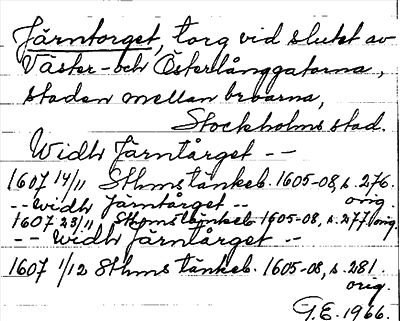 Järntorget, torg vid slutet av
Väster- och Österlånggatorna,
staden mellan broarna,
Stockholms stad.
Widh Järntårget --
1607 14/11 Sthms tänkeb. 1605-08, s. 276.
orig.
-- widh Järntårget --
1607 23/11 Sthms tänkeb. 1605-08, s. 277 orig.
-- widh Järntårget --
1607 1/12 Sthms tänkeb. 1605-08, s. 281.
orig.
G.E. 1966.